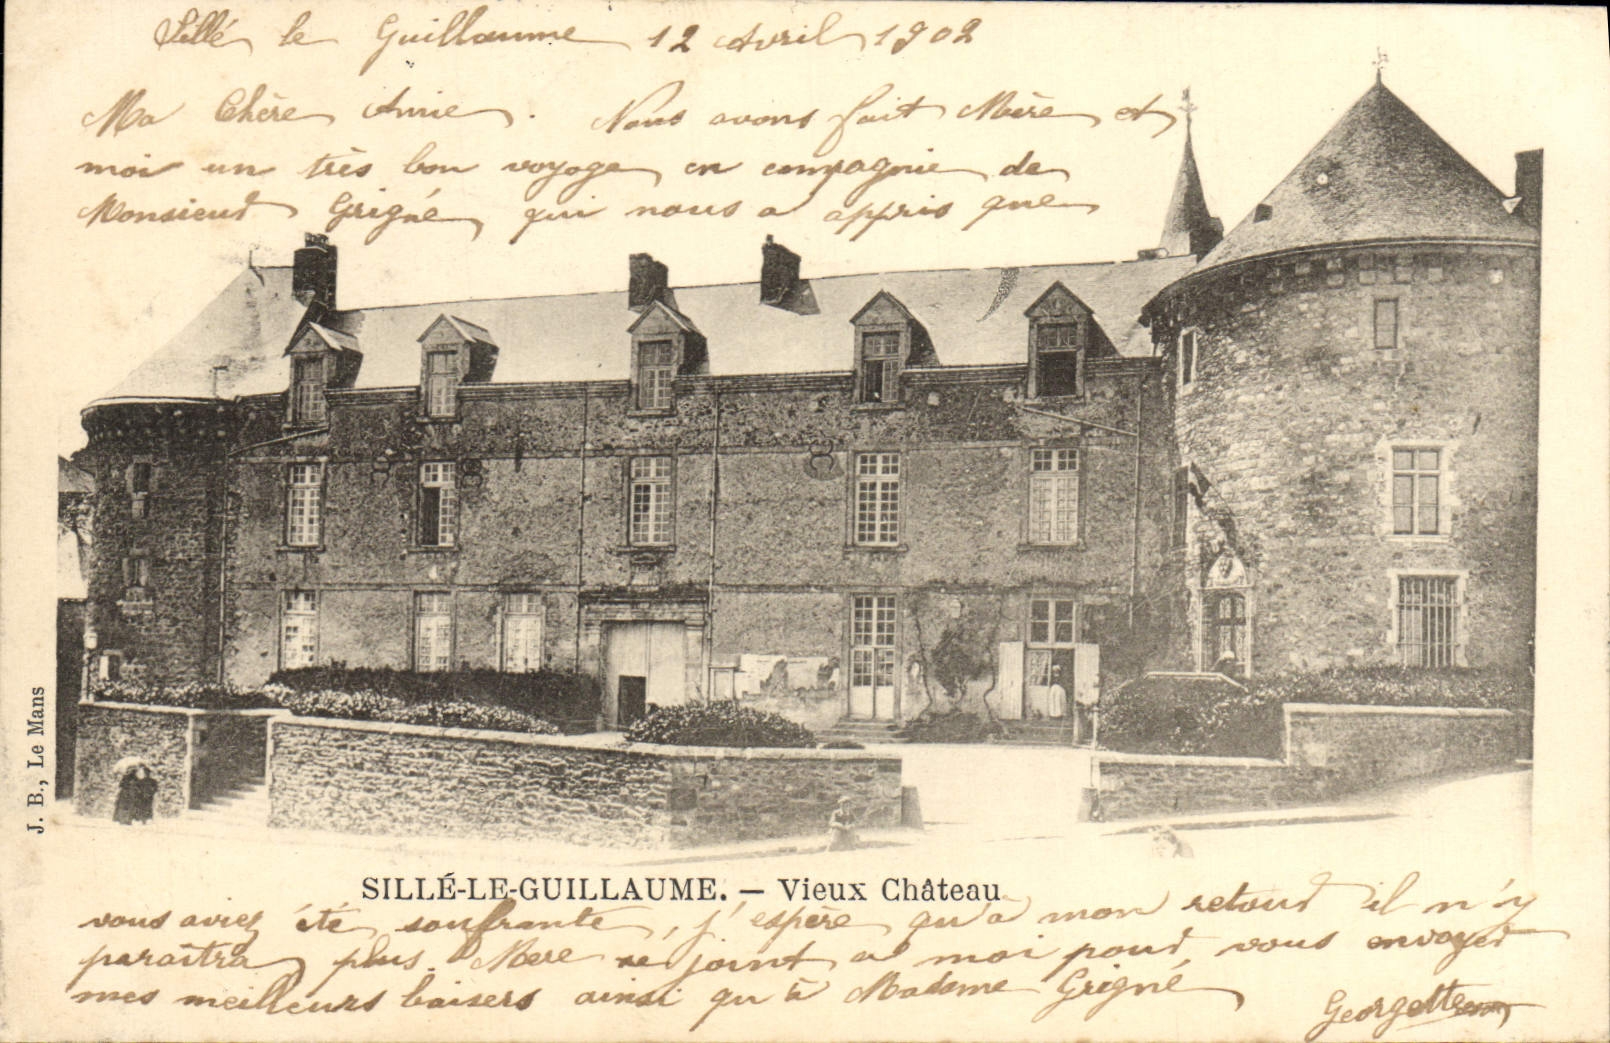 Sillé le Guillaume 12 Avril 1902
Ma Chère Amie. Nous avons fait Mère et
moi un très bon voyage en compagnie de
Monsieur Grigné qui nous a appris que
J. B., Le Mans
SILLÉ-LE-GUILLAUME. — Vieux Château
vous aviez été souffrante, j'espère qu'à mon retour il n'y
paraîtra plus. Mère se joint à moi pour vous envoyer
mes meilleurs baisers ainsi qu'à Madame Grigné
Georgette